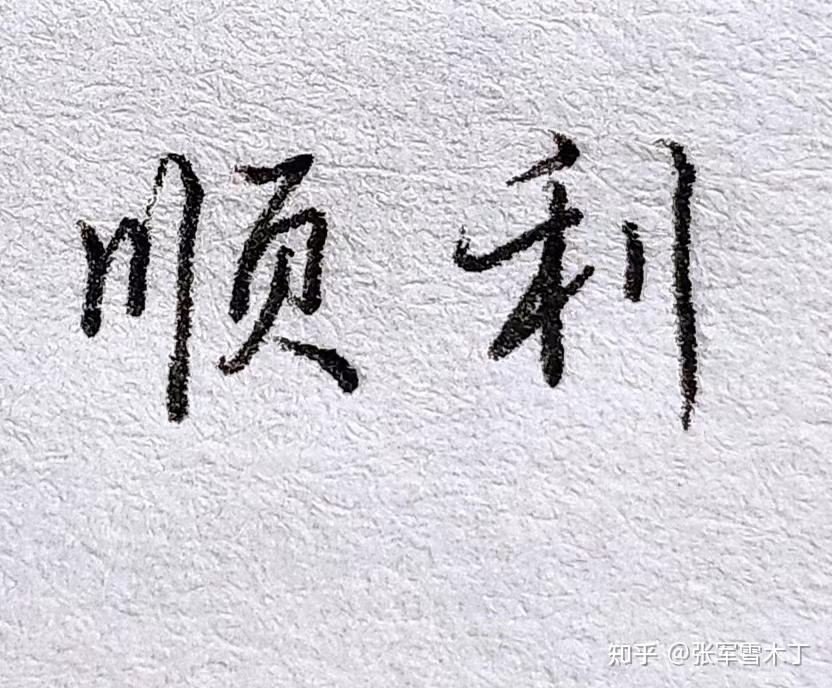 顺利
知乎 @张军雪木丁